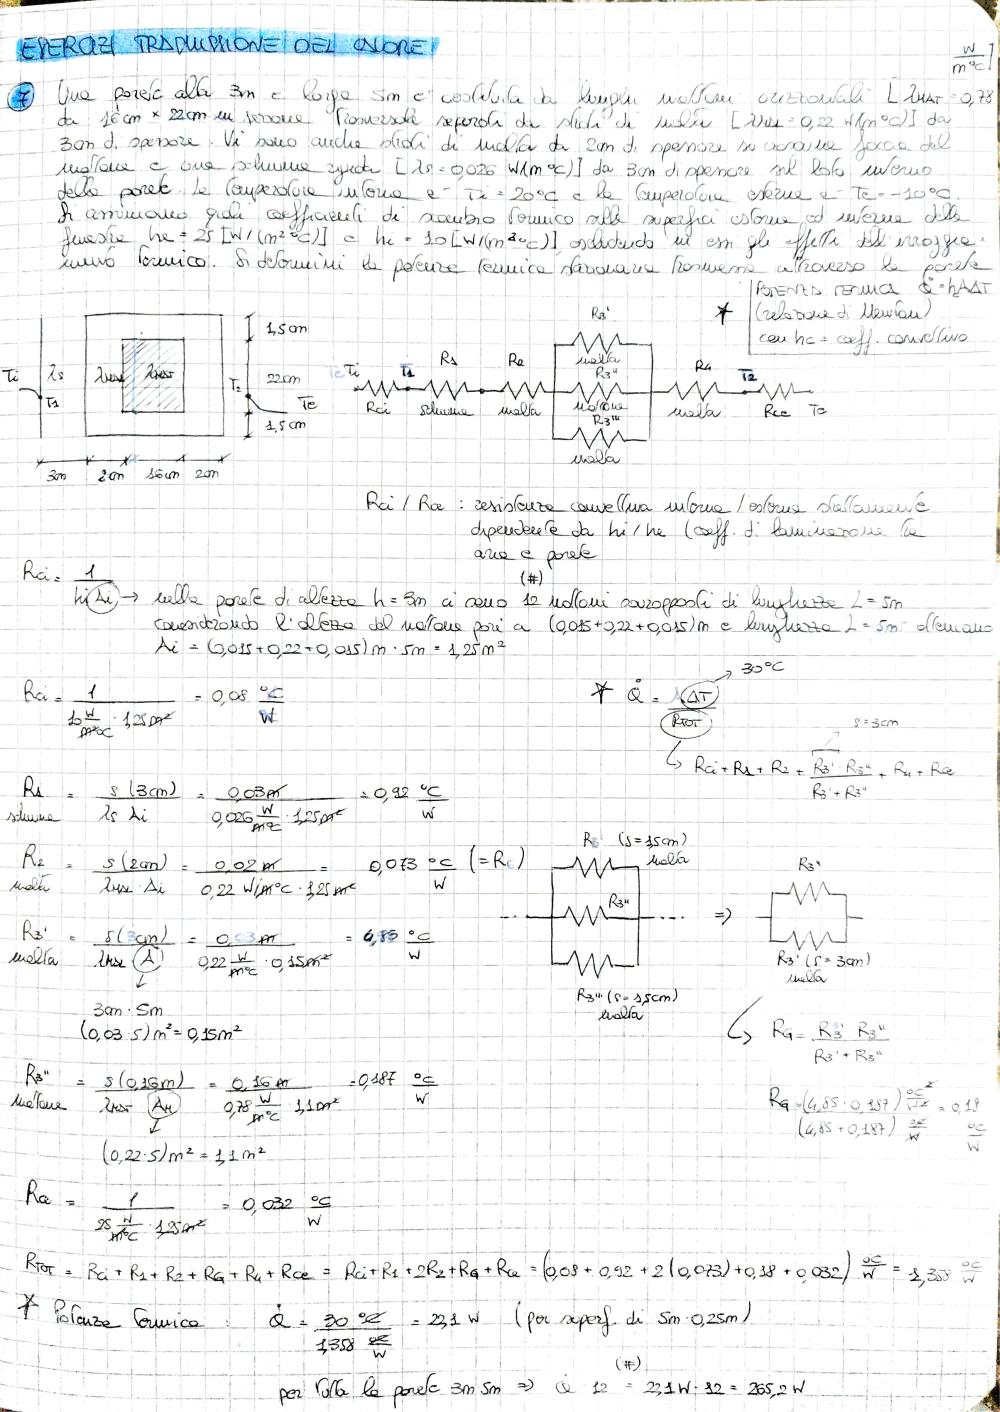 ESERCIZI TRASMISSIONE DEL CALORE
7 Una parete alta 3m e larga 5m e' costituita da lunghi mattoni orizzontali [λMAT = 0,78 W/m°C]
da 16cm × 22cm in sezione trasversale separati da strati di malta [λMAL = 0,22 W/(m°C)] da
3cm di spessore. Vi sono anche strati di malta da 2cm di spessore su ciascuna faccia del
mattone e una schiuma rigida [λs = 0,026 W/(m°C)] da 3cm di spessore sul lato interno
della parete. La temperatura interna e' Ti = 20°C e la temperatura esterna e' Te = -10°C
Si assumano quali coefficienti di scambio termico sulle superfici esterna ed interna della
finestra he = 25 [W/(m²°C)] e hi = 10 [W/(m²°C)], escludendo in esm gli effetti dell'irraggia-
mento termico. Si determini la potenza termica stazionaria trasmessa attraverso la parete
* POTENZA TERMICA Q̇ = hAΔT
(relazione di Newton)
con hc = coeff. convettivo
1,5cm
22cm
1,5cm
Ti
T1
λs
λMAL
λMAT
T2
Te
3cm 2cm 16cm 2cm
Ti T1 R1 R2 R3' R3'' R3''' R4 T2 Te
Rci schiuma malta malta mattone malta malta Rce
Rci / Rce : resistenza convettiva interna / esterna strettamente
dipendente da hi/he (coeff. di laminazione tra
aria e parete
Rci = 1 / hi Ai → nella parete di altezza h = 3m ci sono 12 mattoni sovrapposti di lunghezza L = 5m (#)
considerando l'altezza del mattone pari a (0,015+0,22+0,015)m e lunghezza L = 5m otteniamo
Ai = (0,015+0,22+0,015)m · 5m = 1,25m²
Rci = 1 / 10 W/m²°C · 1,25m² = 0,08 °C/W
* Q̇ = ΔT / RTOT → 30°C
s = 3cm
↳ Rci + R1 + R2 + R3' · R3'' / R3' + R3'' + R4 + Rce
R1 schiuma = s (3cm) / λs Ai = 0,03m / 0,026 W/m°C · 1,25m² = 0,92 °C/W
R2 malta = s (2cm) / λMAL · Ai = 0,02m / 0,22 W/m°C · 1,25m² = 0,073 °C/W (= R4)
R3' malta = s (3cm) / λMAL A = 0,03m / 0,22 W/m°C · 0,15m² = 4,85 °C/W
3cm · 5m
(0,03·5)m² = 0,15m²
R3' (s = 1,5cm) malta
R3''
R3''' (s = 1,5cm) malta
⇒
R3''
R3' (s = 3cm) malta
↳ RG = R3' R3'' / R3' + R3''
RG = (4,85 · 0,187) °C²/W² / (4,85 + 0,187) °C/W = 0,18 °C/W
R3'' mattone = s (0,16m) / λMAT AM = 0,16m / 0,78 W/m°C · 1,1m² = 0,187 °C/W
(0,22·5)m² = 1,1m²
Rce = 1 / 25 W/m²°C · 1,25m² = 0,032 °C/W
RTOT = Rci + R1 + R2 + RG + R4 + Rce = Rci + R1 + 2R2 + RG + Rce = (0,08 + 0,92 + 2(0,073) + 0,18 + 0,032) °C/W = 1,358 °C/W
* Potenza termica : Q̇ = 30 °C / 1,358 °C/W = 22,1 W (per superf. di 5m · 0,25m)
per tutta la parete 3m·5m ⇒ Q̇ · 12 (#) = 22,1 W · 12 = 265,2 W